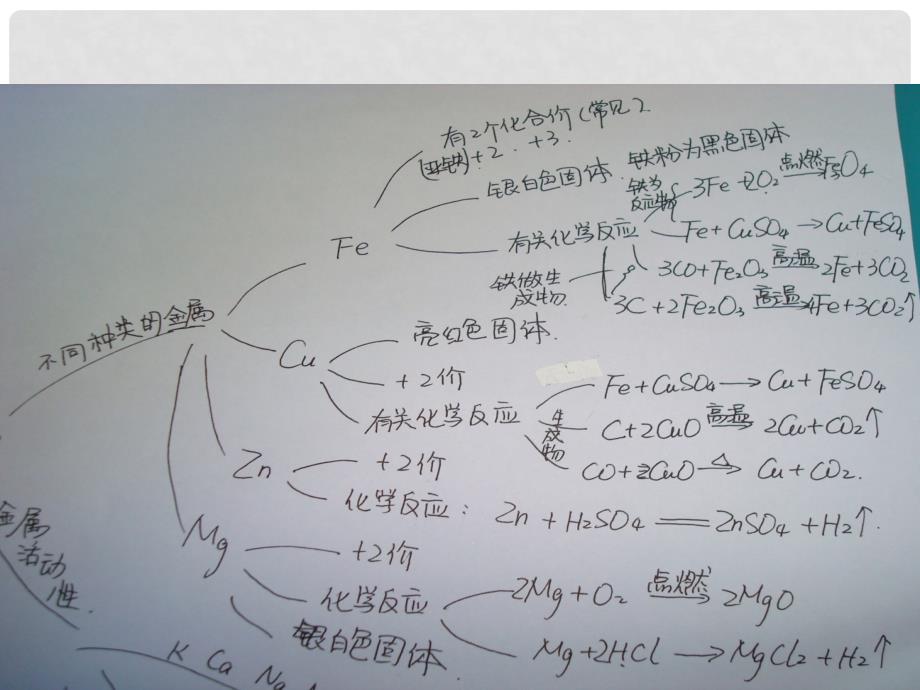 有2个化合价（常见）.
(亚铁)+2. +3.
银白色固体. 铁粉为黑色固体
Fe
有关化学反应
铁为反应物
3Fe+2O2 点燃→ Fe3O4
Fe+CuSO4 → Cu+FeSO4
铁做生成物
3CO+Fe2O3 高温→ 2Fe+3CO2
3C+2Fe2O3 高温→ 4Fe+3CO2↑
不同种类的金属
Cu
亮红色固体.
+2价
有关化学反应
Fe+CuSO4 → Cu+FeSO4
生成物
C+2CuO 高温→ 2Cu+CO2↑
CO+CuO △→ Cu+CO2.
Zn
+2价
化学反应: Zn+H2SO4 ═ ZnSO4+H2↑.
Mg
+2价
化学反应
2Mg+O2 点燃→ 2MgO
Mg+2HCl → MgCl2+H2↑
银白色固体.
金属活动性.
K Ca Na